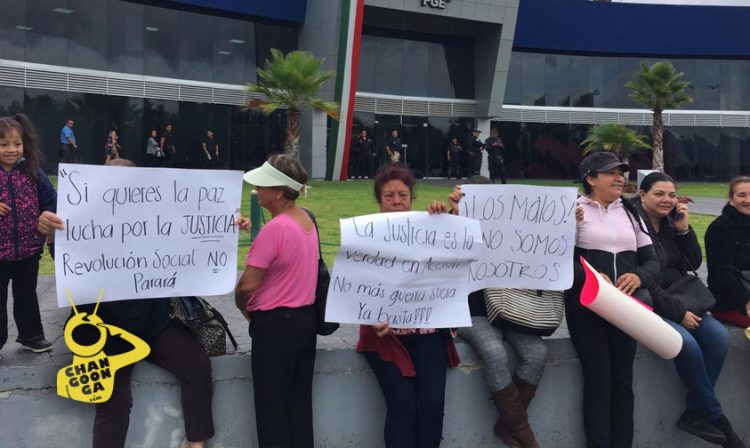 PGE
"Si quieres la paz
lucha por la JUSTICIA"
Revolución Social NO
Parará
La Justicia es la
verdad en Acción
No más guerra sucia
Ya basta!!!
¡Los Malos!
No somos
Nosotros
CHAN
GOON
GA
.com